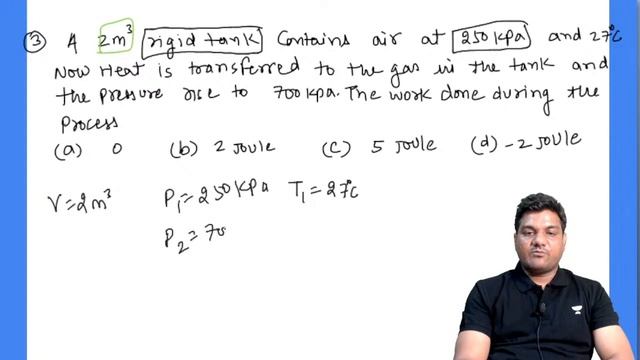 ③ A 2m³ rigid tank contains air at 250 kpa and 27°c
Now Heat is transferred to the gas in the tank and
the pressure rise to 700 kpa. The work done during the
process
(a) 0 (b) 2 Joule (c) 5 Joule (d) -2 Joule
V = 2m³ P₁ = 250 kPa T₁ = 27°c
P₂ = 70